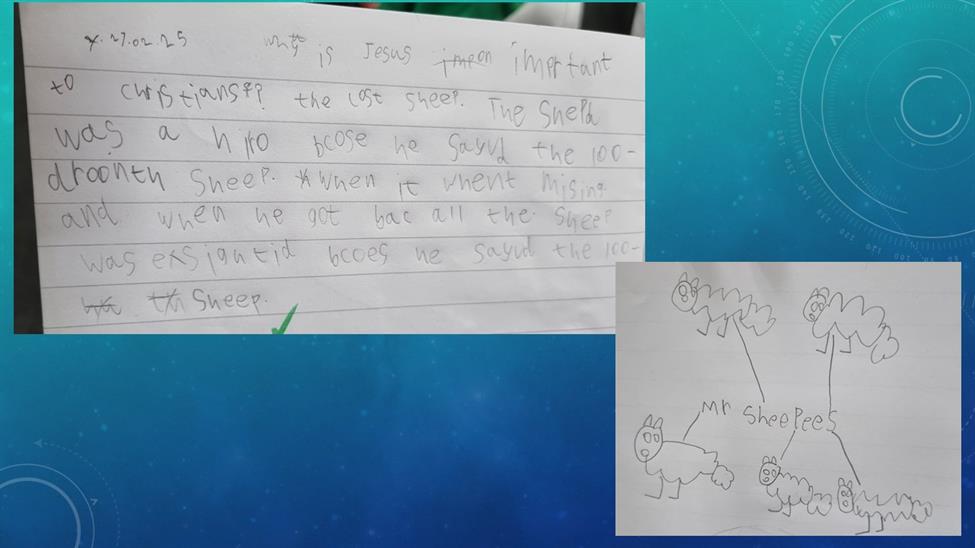 27.02.25 why is Jesus important
to christians?? the lost sheep. The shepd
was a hiro bcose he sayvd the 100-
droonth sheep. when it whent mising
and when he got bac all the sheep
was exsigntid bcoes he sayvd the 100-
th sheep.
Mr Sheepees